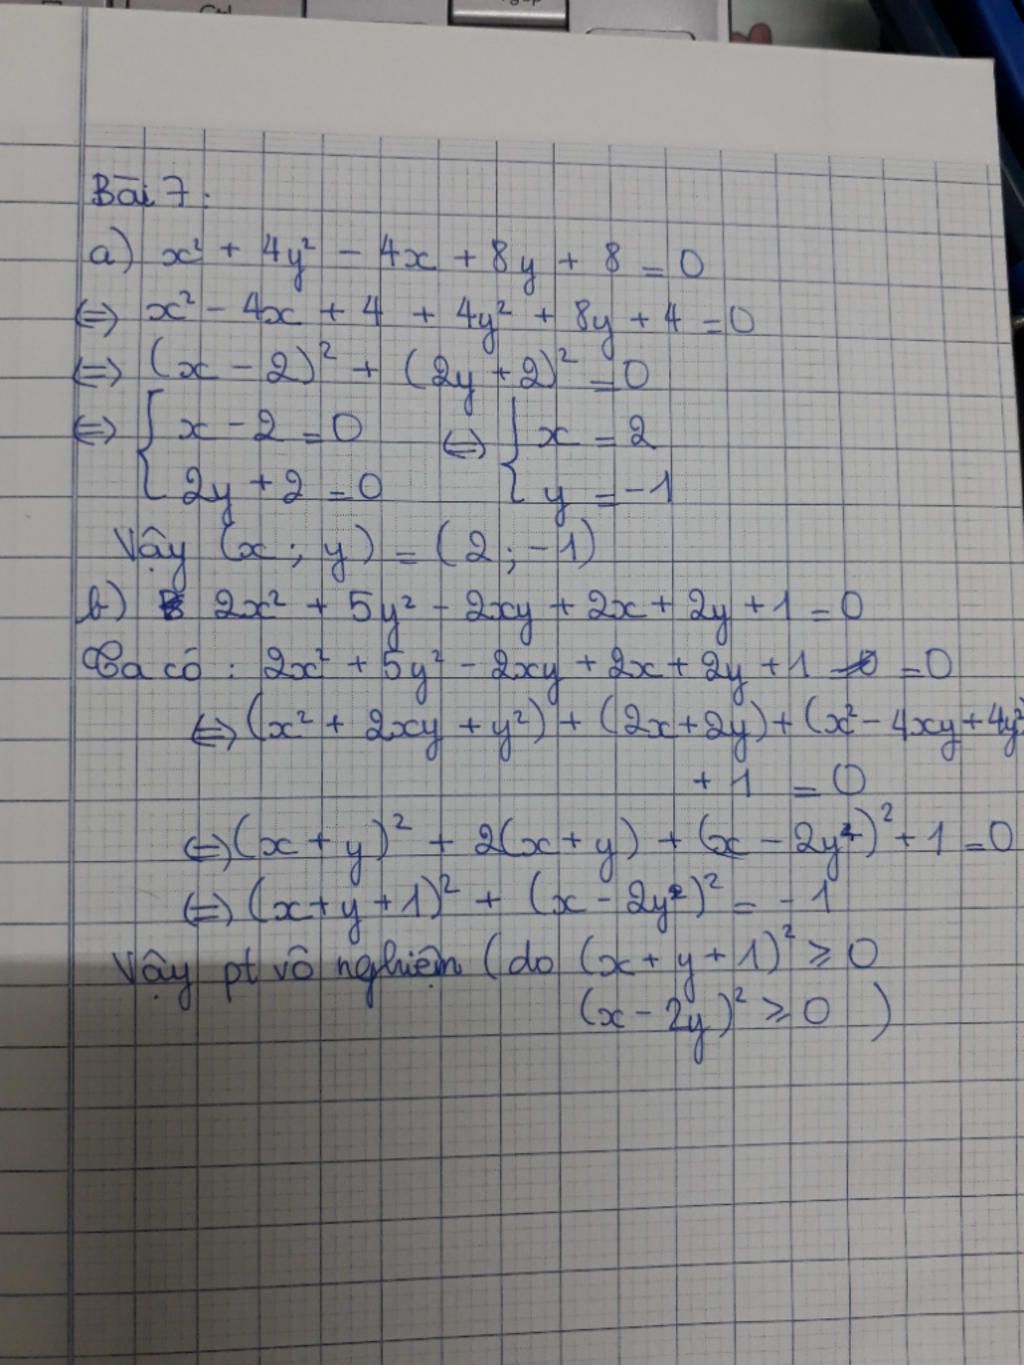 Ctrl
Bài 7:
a) x² + 4y² - 4x + 8y + 8 = 0
⇔ x² - 4x + 4 + 4y² + 8y + 4 = 0
⇔ (x - 2)² + (2y + 2)² = 0
⇔ { x - 2 = 0 ⇔ { x = 2
2y + 2 = 0 y = -1
Vậy (x ; y) = (2 ; -1)
b) 2x² + 5y² - 2xy + 2x + 2y + 1 = 0
Ta có : 2x² + 5y² - 2xy + 2x + 2y + 1 = 0
⇔ (x² + 2xy + y²) + (2x + 2y) + (x² - 4xy + 4y²
+ 1 = 0
⇔ (x + y)² + 2(x + y) + (x - 2y)² + 1 = 0
⇔ (x + y + 1)² + (x - 2y²)² = -1
Vậy pt vô nghiệm (do (x + y + 1)² ≥ 0
(x - 2y)² ≥ 0 )